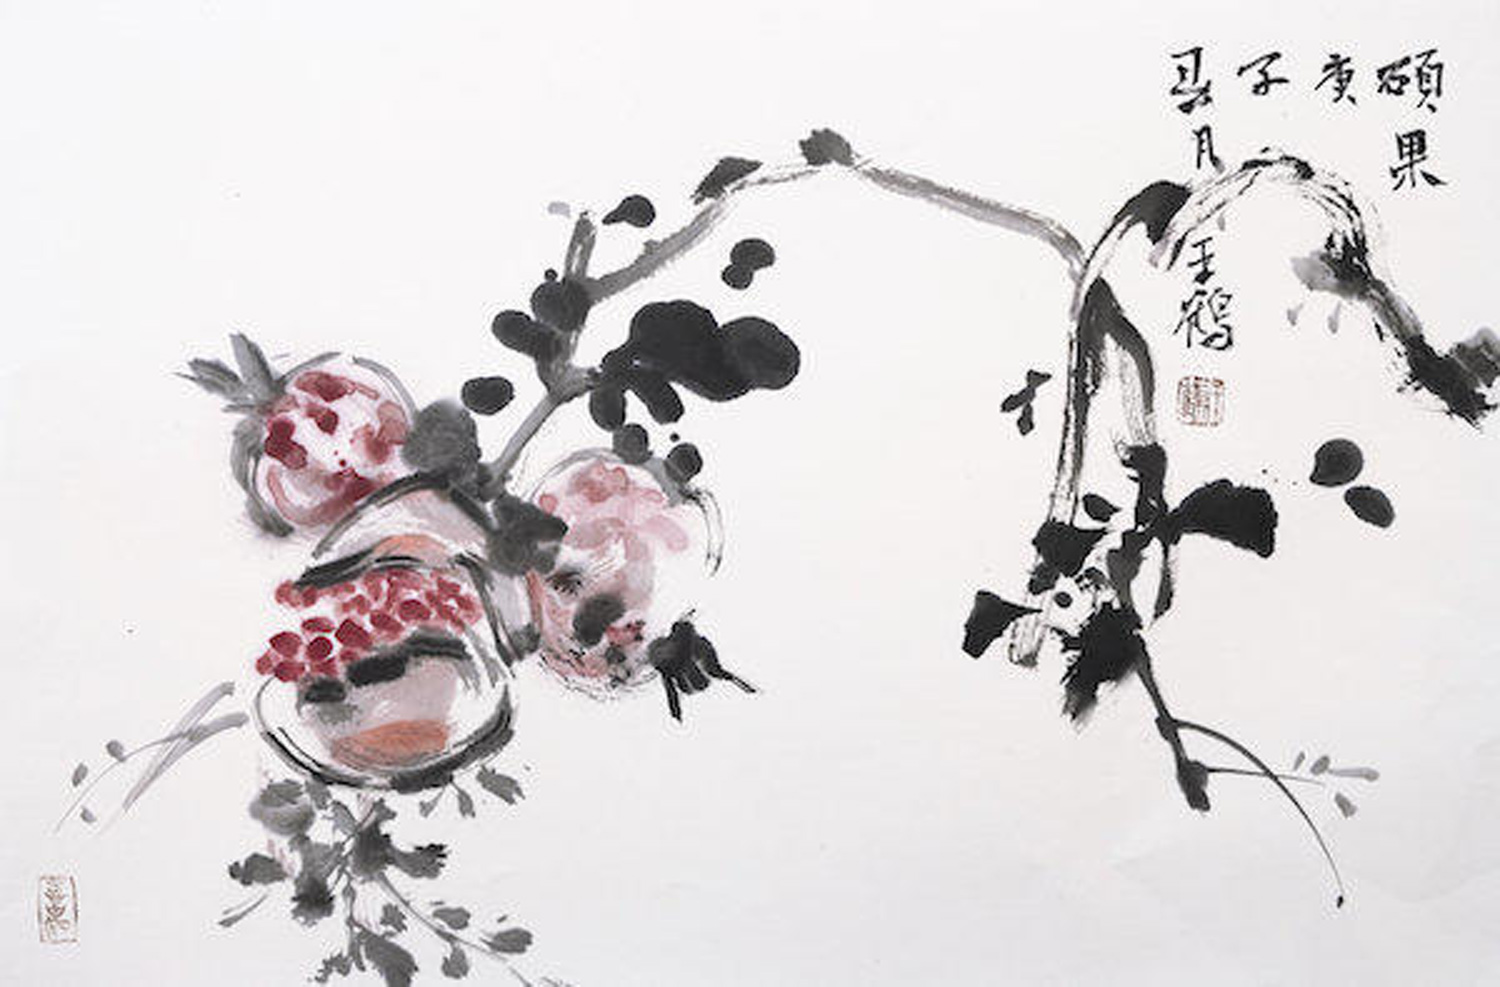 碩果
庚
子
夏月王鶴